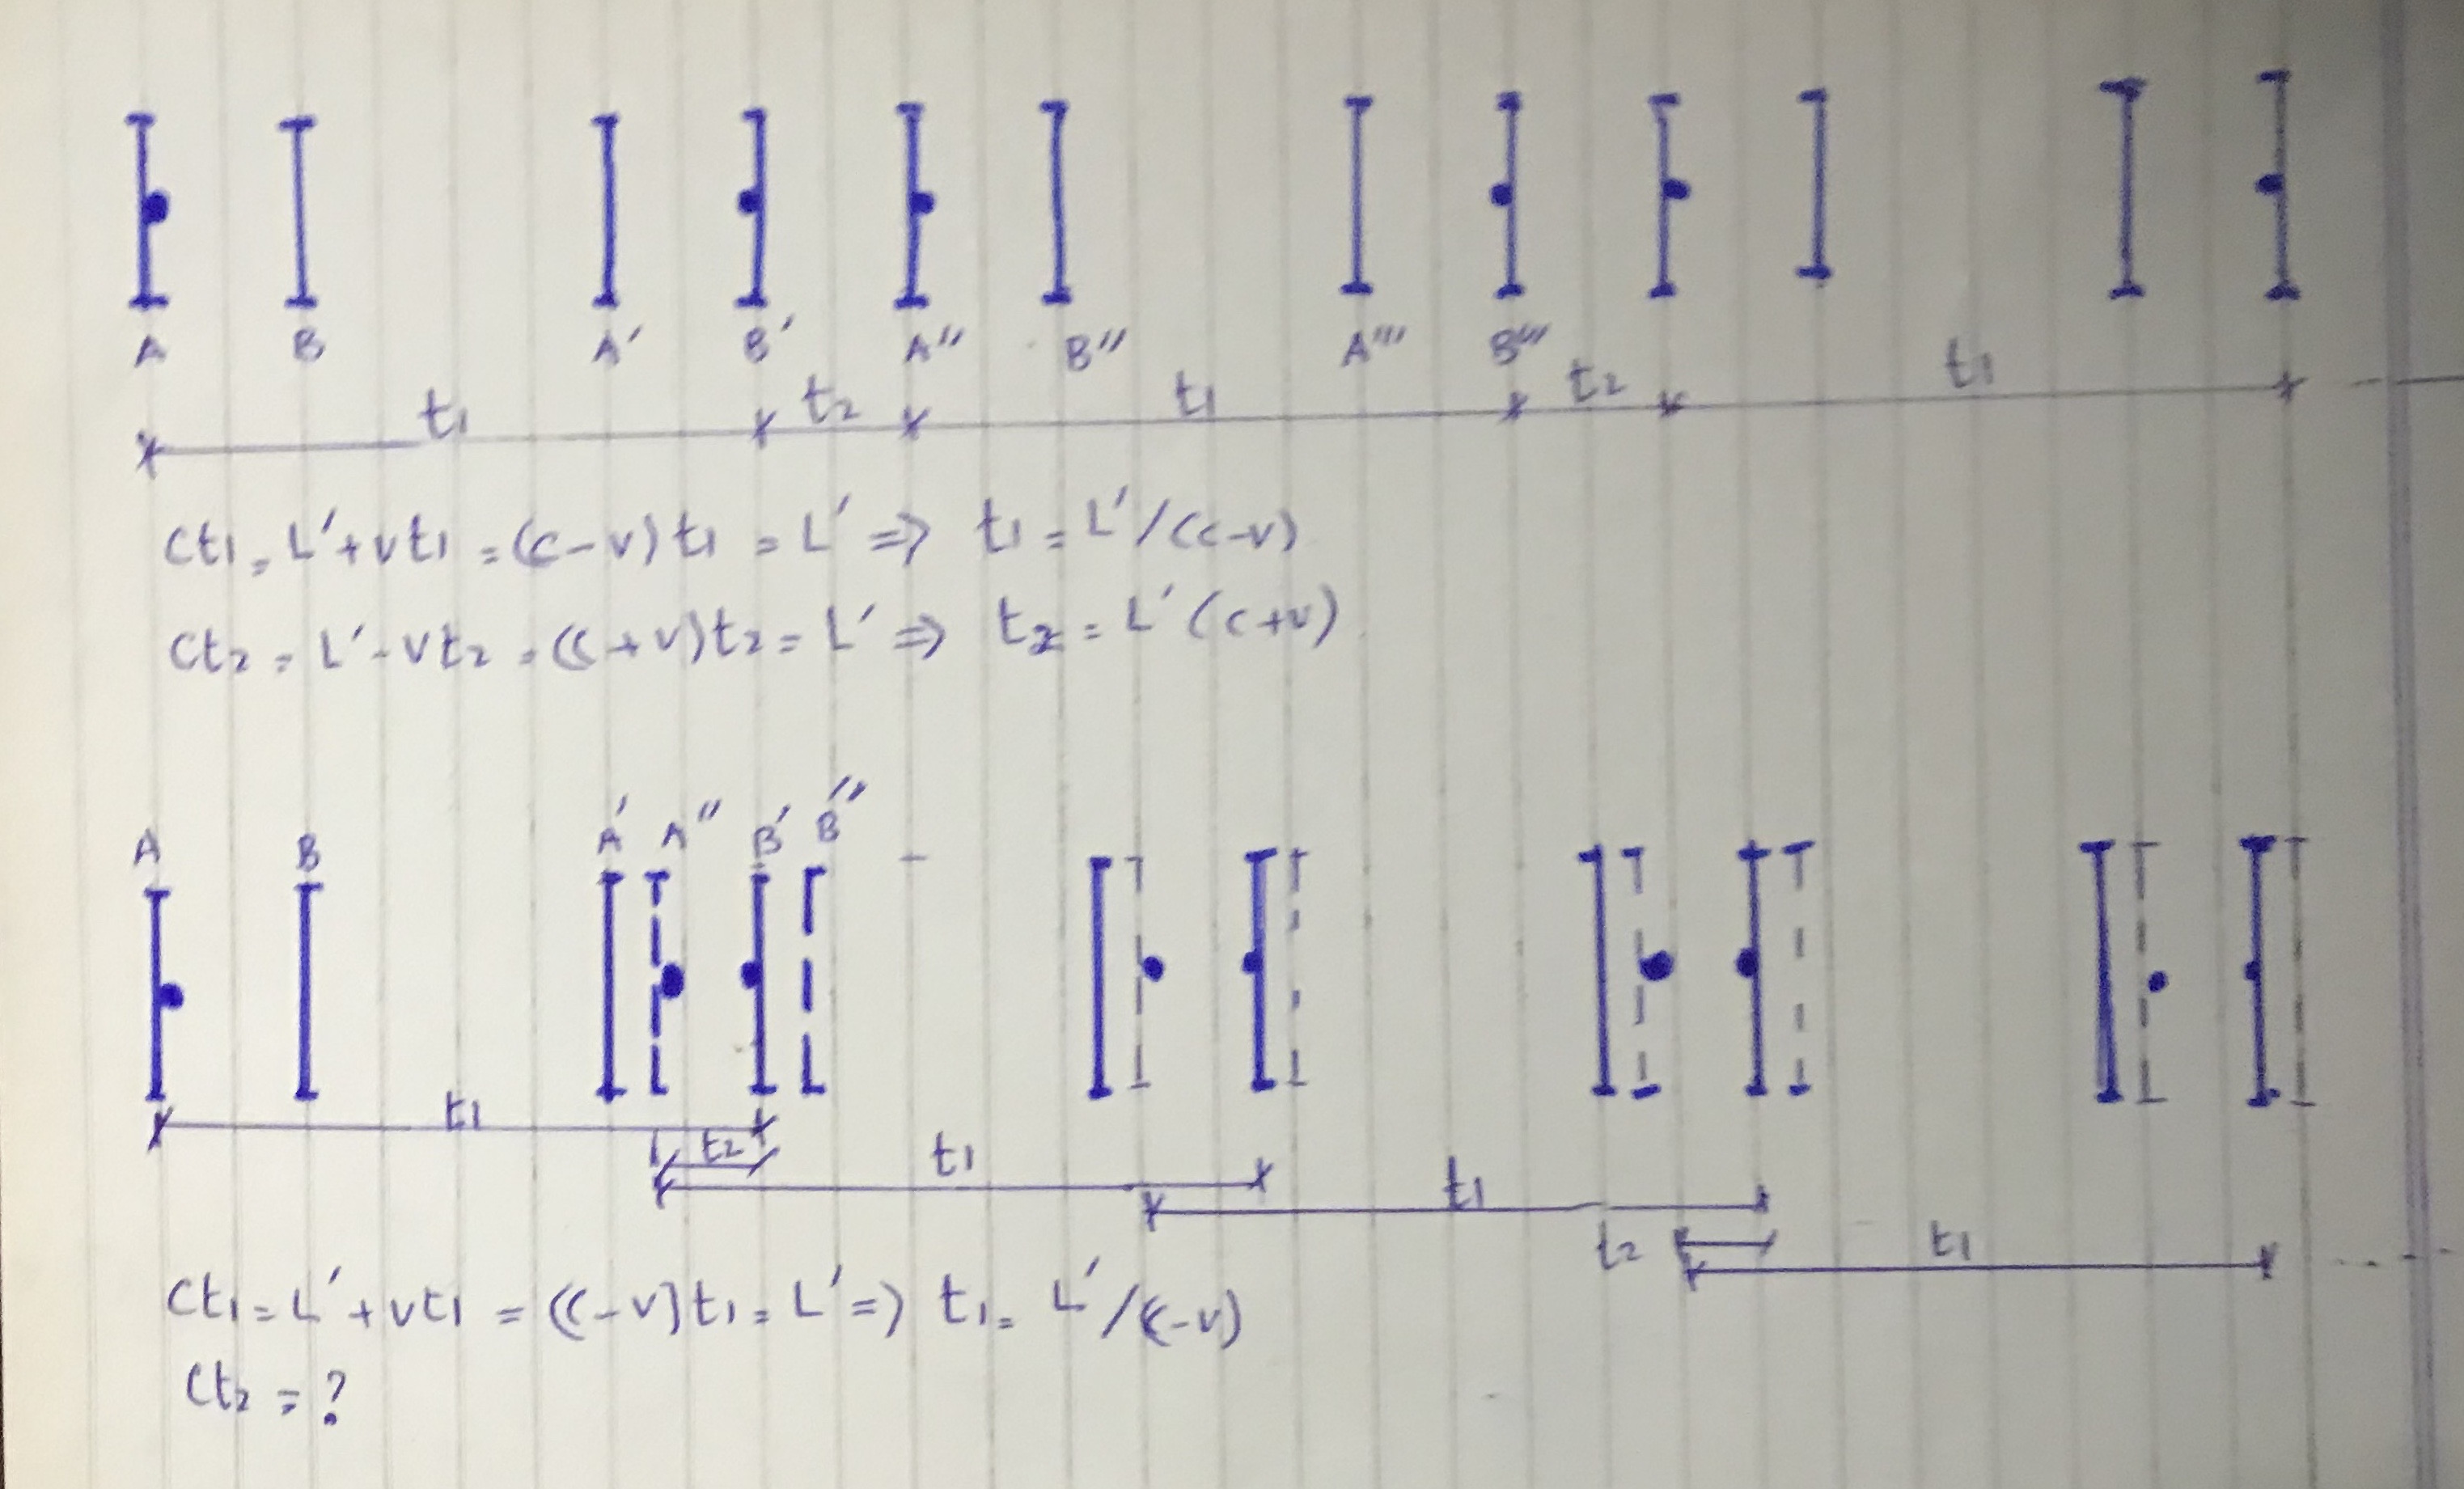 A B A′ B′ A″ B″ A‴ B‴
t1 t2 t1 t2 t1
ct1 = L′+vt1 = (c-v)t1 = L′ => t1 = L′/(c-v)
ct2 = L′-vt2 = (c+v)t2 = L′ => t2 = L′(c+v)
A B A′ A″ B′ B″
t1 t2 t1 t1 t2 t1
ct1 = L′+vt1 = (c-v)t1 = L′ => t1 = L′/(c-v)
ct2 = ?